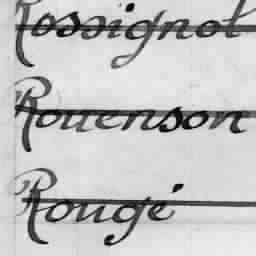 Rossignol
Rouenson
Rougé